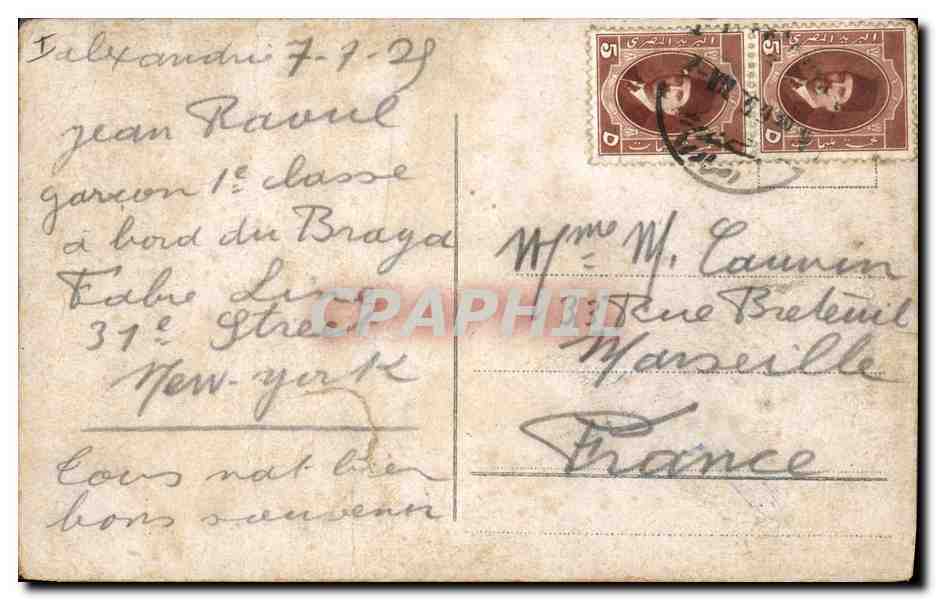 Alexandrie 7-1-25
Jean Raoul
garçon 1e classe
à bord du Braga
Fabre Line
31e Street
New-York
bien
bons souvenir
Mme M. Cauvin
33 Rue Breteuil
Marseille
France
البريد المصرى
5
البريد المصرى
5
CPAPHIL